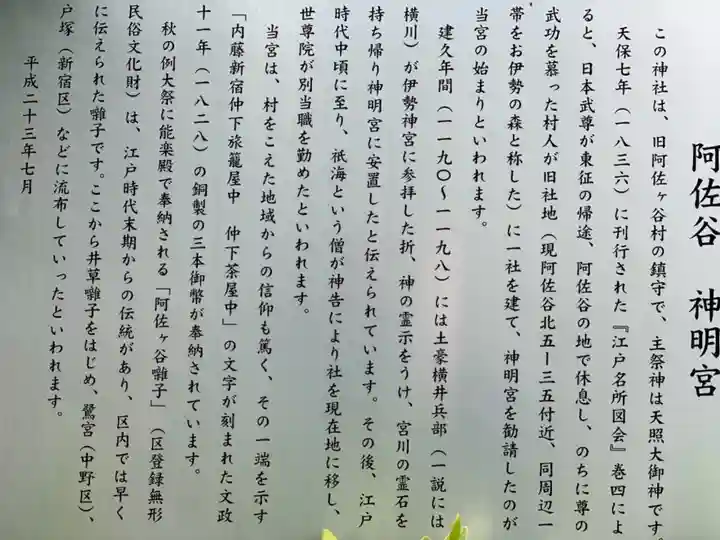 阿佐谷　神明宮
この神社は、旧阿佐ヶ谷村の鎮守で、主祭神は天照大御神です。
天保七年（一八三六）に刊行された『江戸名所図会』巻四によ
ると、日本武尊が東征の帰途、阿佐谷の地で休息し、のちに尊の
武功を慕った村人が旧社地（現阿佐谷北五ー三五付近、同周辺一
帯をお伊勢の森と称した）に一社を建て、神明宮を勧請したのが
当宮の始まりといわれます。
建久年間（一一九〇〜一一九八）には土豪横井兵部（一説には
横川）が伊勢神宮に参拝した折、神の霊示をうけ、宮川の霊石を
持ち帰り神明宮に安置したと伝えられています。その後、江戸
時代中頃に至り、祇海という僧が神告により社を現在地に移し、
世尊院が別当職を勤めたといわれます。
当宮は、村をこえた地域からの信仰も篤く、その一端を示す
「内藤新宿仲下旅籠屋中　仲下茶屋中」の文字が刻まれた文政
十一年（一八二八）の銅製の三本御幣が奉納されています。
秋の例大祭に能楽殿で奉納される「阿佐ヶ谷囃子」（区登録無形
民俗文化財）は、江戸時代末期からの伝統があり、区内では早く
に伝えられた囃子です。ここから井草囃子をはじめ、鷺宮（中野区）、
戸塚（新宿区）などに流布していったといわれます。
平成二十三年七月